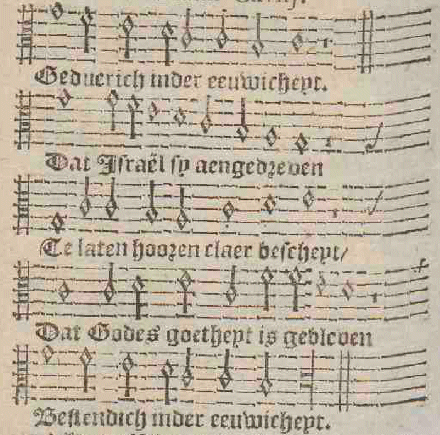 Geduerich inder eeuwicheyt.
Dat Israël sy aengedreven
Te laten hooren claer bescheyt/
Dat Godes goetheyt is gebleven
Bestendich inder eeuwicheyt.